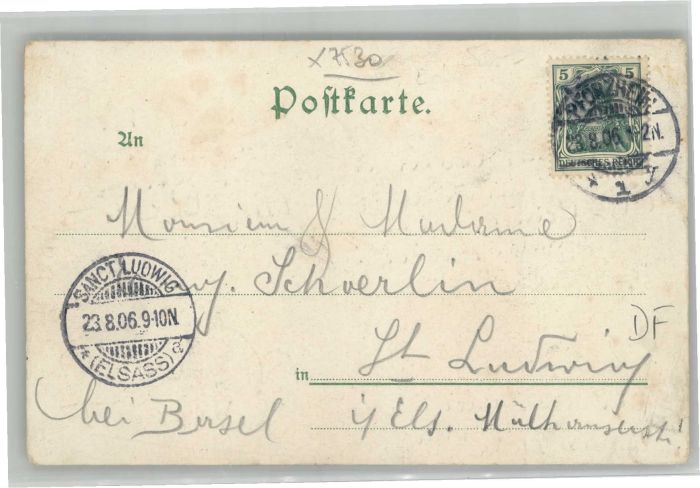 x 7530
Postkarte.
5 5
DEUTSCHES REICH
PFORZHEIM
23.8.06. 1-2N.
* 1 y
An
Monsieur & Madame
Schoerlin
SANCT LUDWIG
23.8.06.9-10N.
* (ELSASS) a
DF
in St Ludwig
bei Basel i/Els. Mülhauserstr.